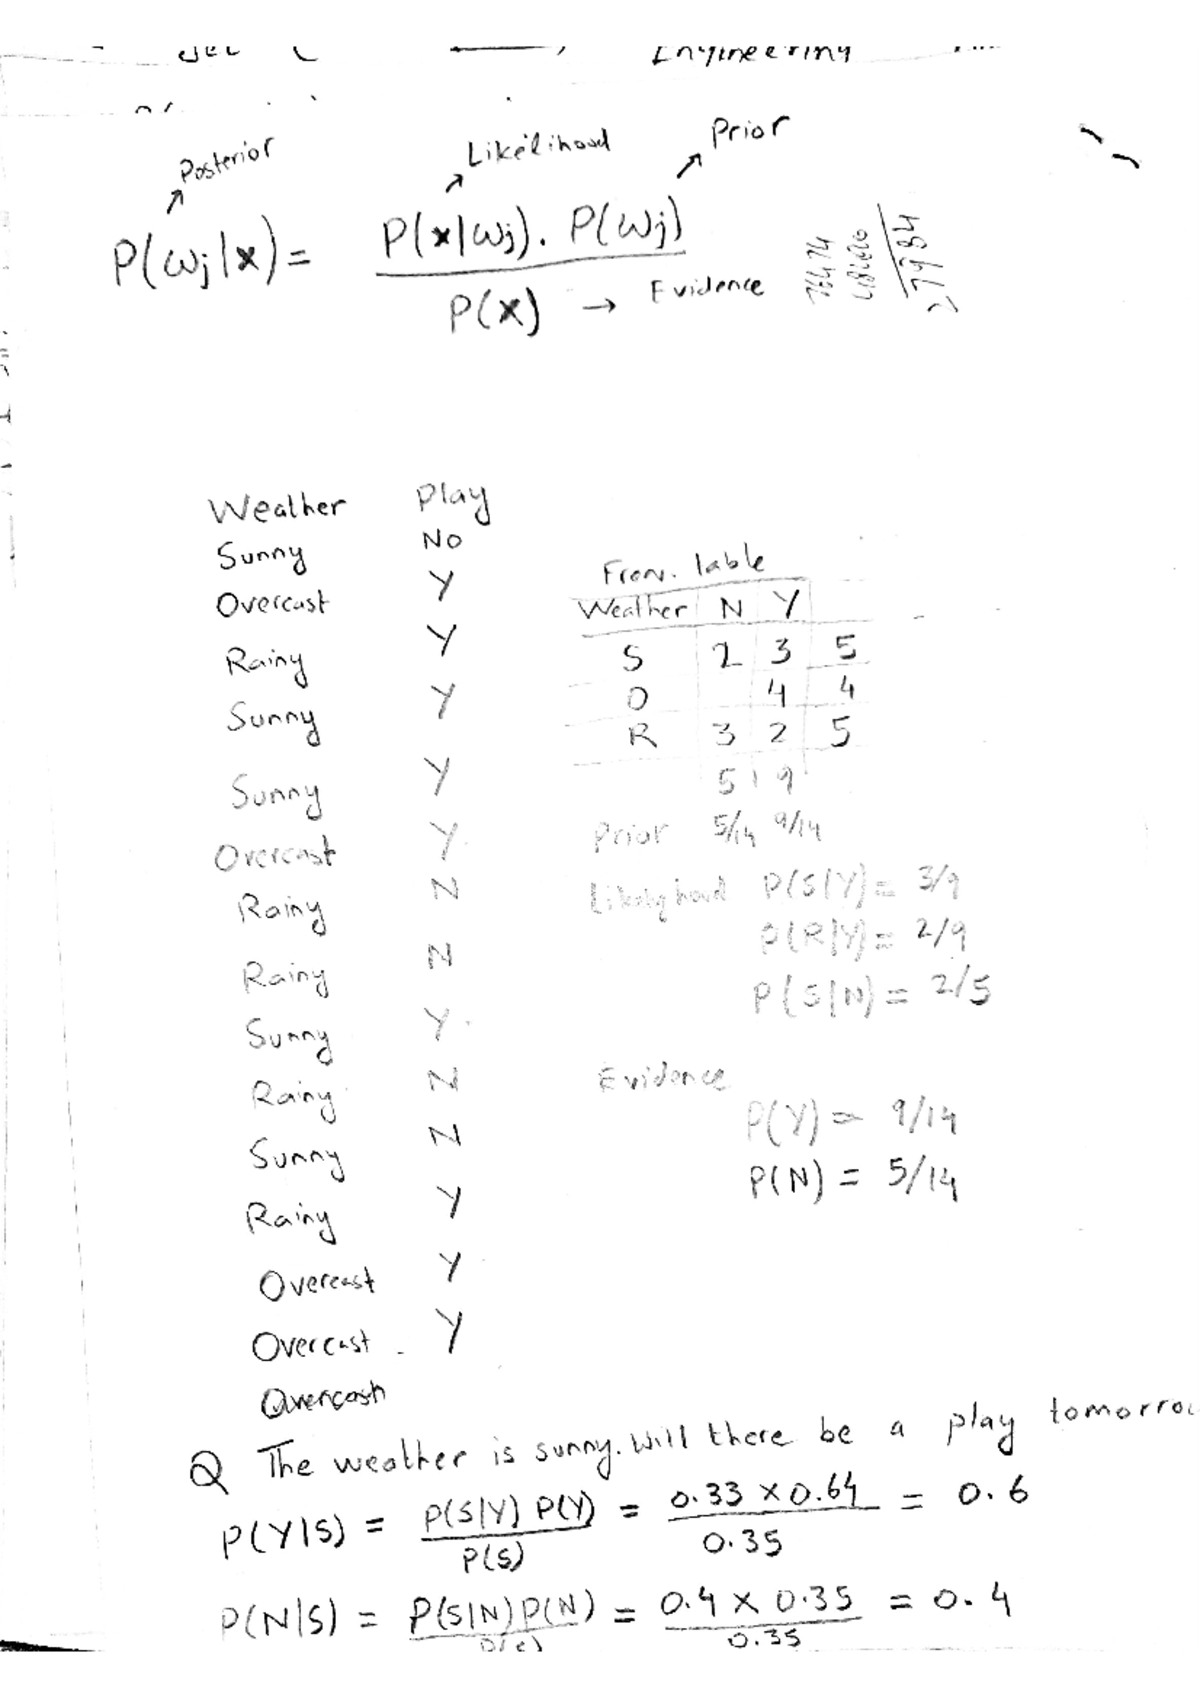 Engineering
Posterior Likelihood Prior
P(ωj|x) = P(x|ωj). P(ωj)
P(x) → Evidence
Weather Play
Sunny No
Overcast Y
Rainy Y
Sunny Y
Sunny Y
Overcast Y
Rainy N
Rainy N
Sunny Y
Rainy N
Sunny N
Rainy Y
Overcast Y
Overcast Y
Overcash
table
Weather N Y
S 2 3 5
O 4 4
R 3 2 5
5 9
Prior 5/14 9/14
Likelyhood P(S|Y) = 3/9
P(R|Y) = 2/9
P(S|N) = 2/5
Evidence
P(Y) = 9/14
P(N) = 5/14
Q The weather is sunny. Will there be a play
P(Y|S) = P(S|Y) P(Y) = 0.33 × 0.64 = 0.6
P(S) 0.35
P(N|S) = P(S|N) P(N) = 0.4 × 0.35 = 0.4
0.35